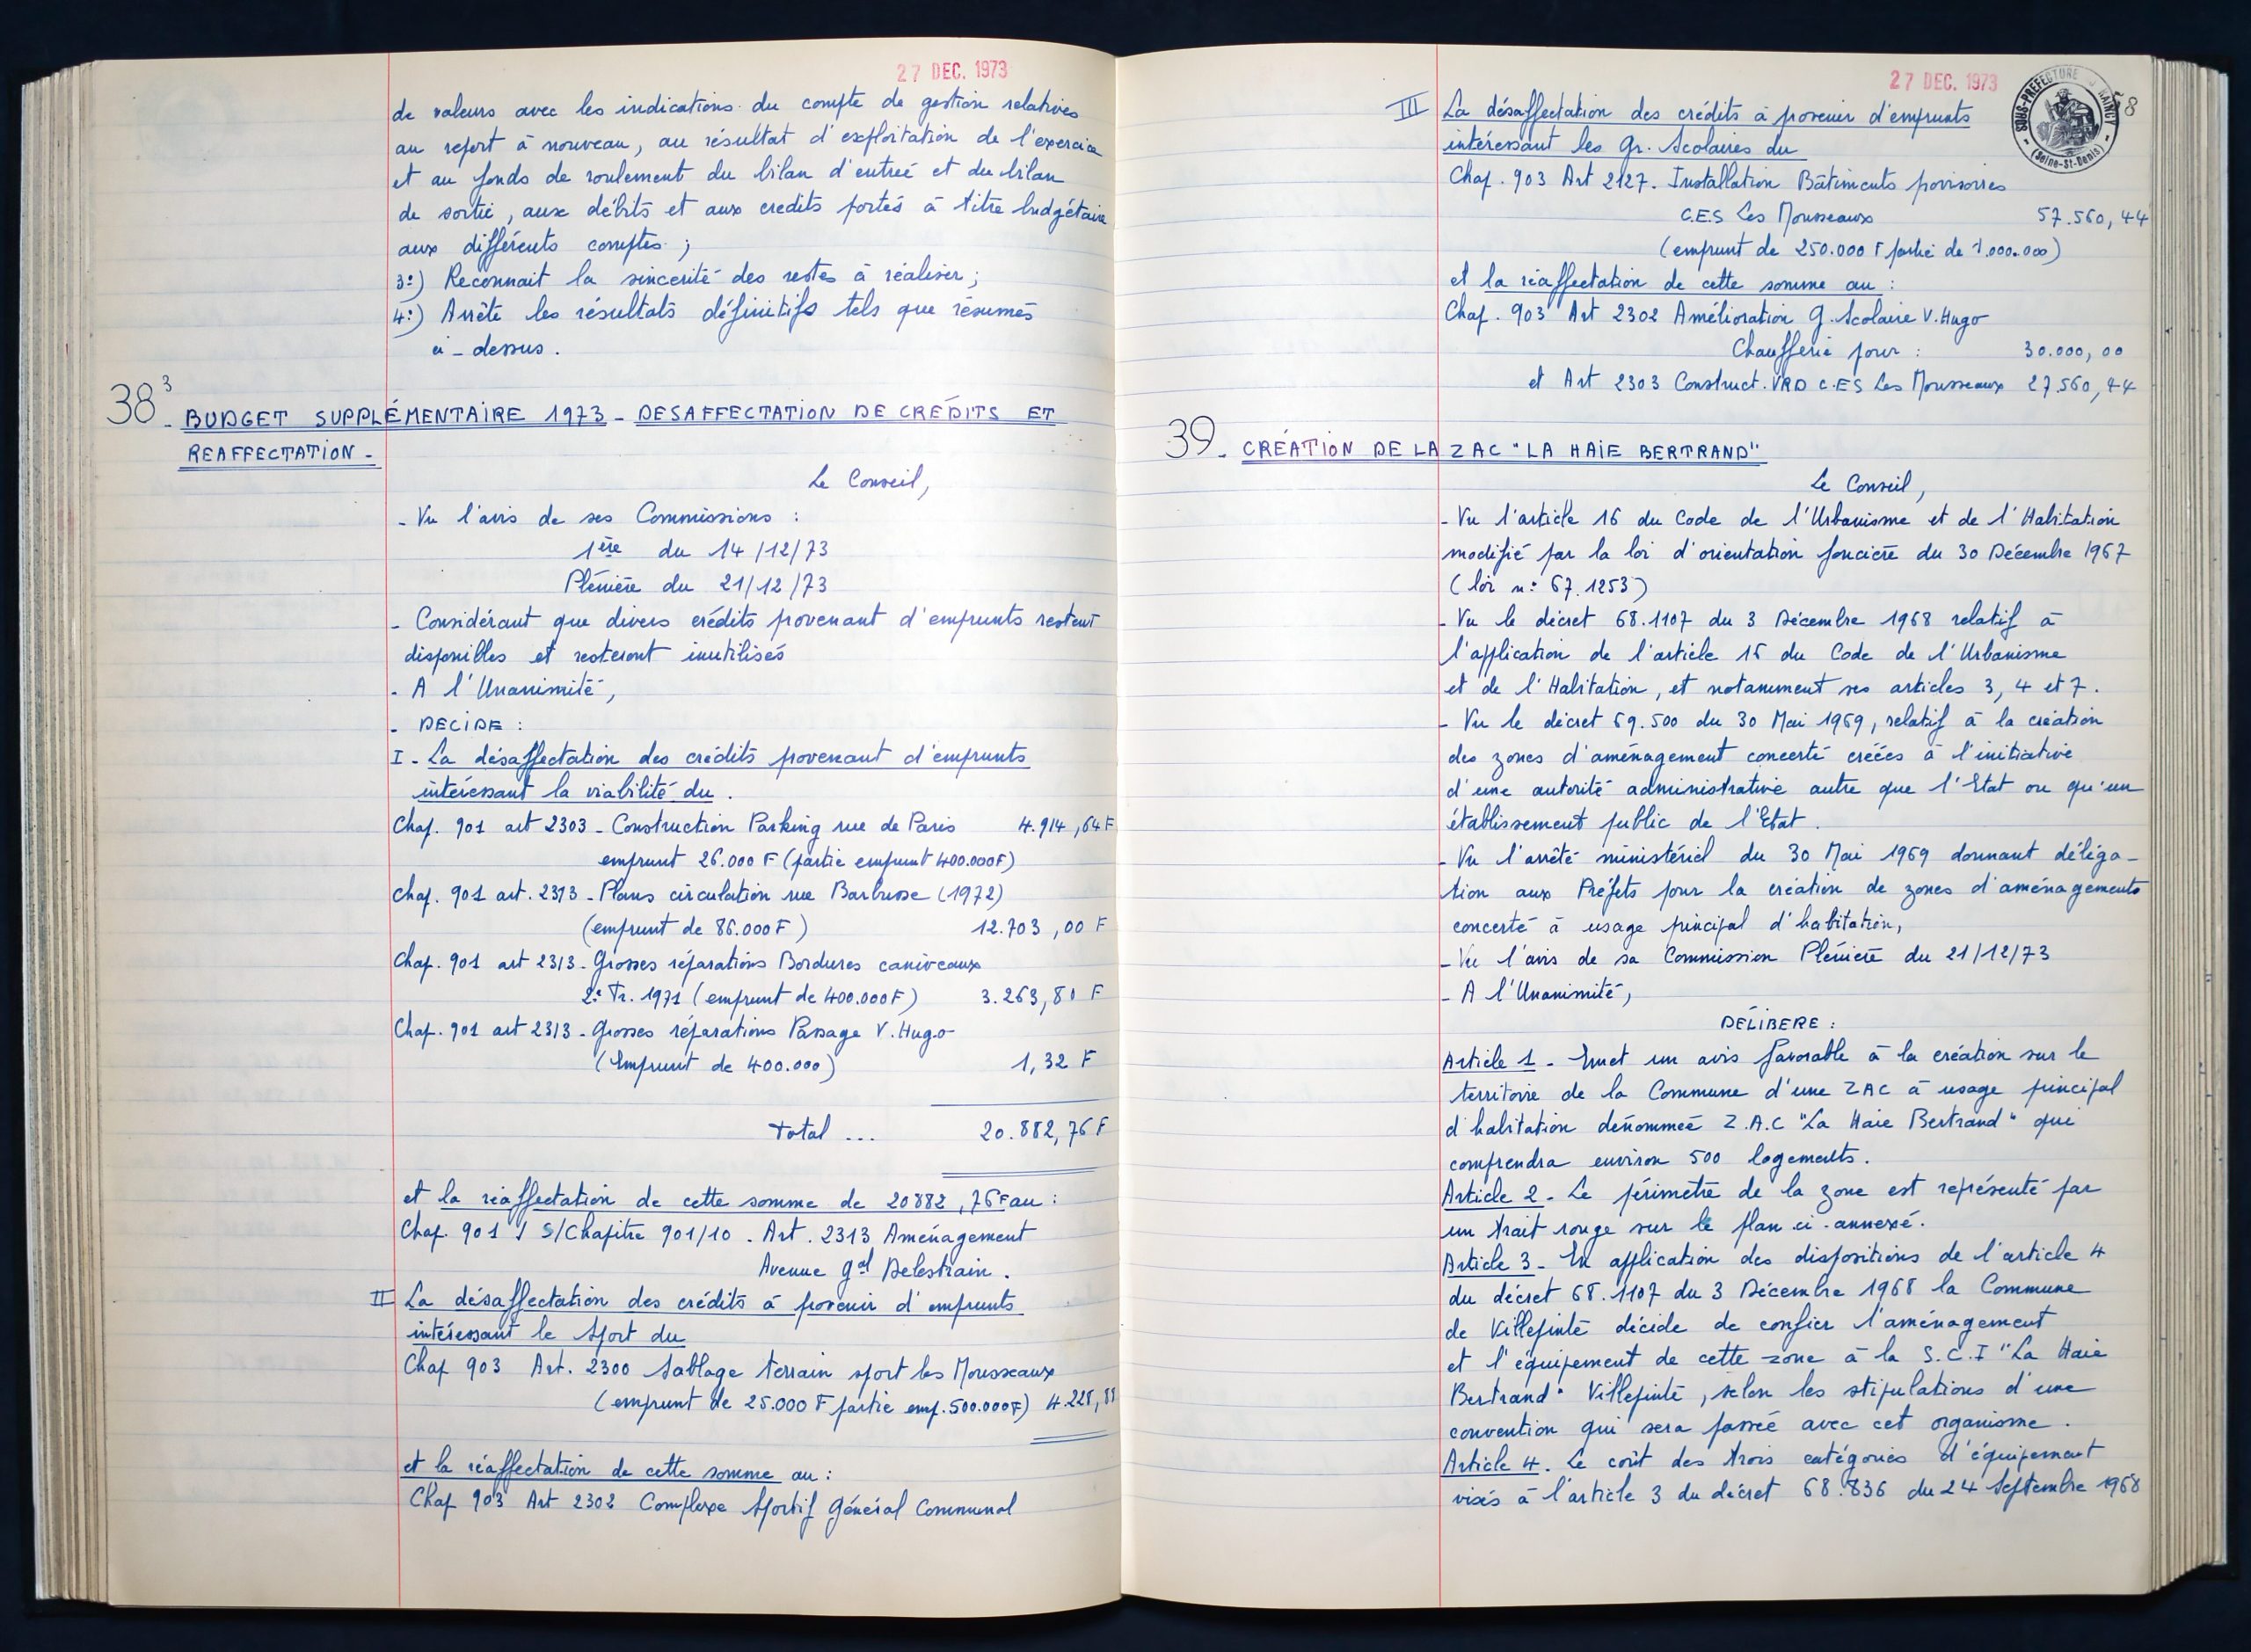 27 DEC. 1973
de valeurs avec les indications du compte de gestion relatives
au report à nouveau, au résultat d'exploitation de l'exercice
et au fonds de roulement du bilan d'entrée et du bilan
de sortie, aux débits et aux credits portés à titre budgétaire
aux différents comptes ;
3:) Reconnait la sincerité des restes à réaliser ;
4:) Arrête les résultats définitifs tels que résumés
ci-dessus.
38³ - BUDGET SUPPLÉMENTAIRE 1973 - DESAFFECTATION DE CRÉDITS ET
REAFFECTATION -
Le Conseil,
- Vu l'avis de ses Commissions :
1ère du 14/12/73
Plénière du 21/12/73
- Considérant que divers crédits provenant d'emprunts restent
disponibles et resteront inutilisés
- A l'Unanimité,
- DECIDE :
I - La désaffectation des crédits provenant d'emprunts
intéressant la viabilité du .
Chap. 901 art 2303 - Construction Parking rue de Paris 4.914,64 F
emprunt 26.000 F (partie emprunt 400.000F)
Chap. 901 art. 2313 - Plans circulation rue Barbusse (1972)
(emprunt de 86.000 F) 12.703,00 F
Chap. 901 art 2313 - Grosses réparations Bordures caniveaux
2è Tr. 1971 (emprunt de 400.000 F) 3.263,80 F
Chap. 901 art 2313 - Grosses réparations Passage V. Hugo
(Emprunt de 400.000) 1,32 F
Total ... 20.882,76 F
et la réaffectation de cette somme de 20882,76F au :
Chap. 901 S/Chapitre 901/10 . Art. 2313 Aménagement
Avenue gal Delestrain .
II La désaffectation des crédits à provenir d'emprunts
intéressant le Sport du
Chap 903 Art. 2300 Sablage terrain sport les Mousseaux
(emprunt de 25.000 F partie emp. 500.000F) 4.228,88
et la réaffectation de cette somme au :
Chap 903 Art 2302 Complexe Sportif Général Communal
27 DEC. 1973
SOUS-PRÉFECTURE RAINCY
(Seine-St-Denis)
8
III La désaffectation des crédits à provenir d'emprunts
intéressant les Gr. Scolaires du
Chap. 903 Art 2127. Installation Bâtiments provisoires
C.E.S Les Mousseaux 57.560,44
(emprunt de 250.000 F partie de 1.000.000)
et la réaffectation de cette somme au :
Chap. 903 Art 2302 Amélioration G. Scolaire V. Hugo
Chaufferie pour : 30.000,00
et Art 2303 Construct. VRD C.ES Les Mousseaux 27.560,44
39 - CRÉATION DE LA ZAC "LA HAIE BERTRAND"
Le Conseil,
- Vu l'article 16 du Code de l'Urbanisme et de l'Habitation
modifié par la loi d'orientation foncière du 30 Décembre 1967
(loi n: 67.1253)
- Vu le décret 68.1107 du 3 Décembre 1968 relatif à
l'application de l'article 16 du Code de l'Urbanisme
et de l'Habitation, et notamment ses articles 3, 4 et 7.
- Vu le décret 69.500 du 30 Mai 1969, relatif à la création
des zones d'aménagement concerté créées à l'initiative
d'une autorité administrative autre que l'Etat ou qu'un
établissement public de l'Etat.
- Vu l'arrêté ministériel du 30 Mai 1969 donnant déléga-
tion aux Préfets pour la création de zones d'aménagements
concerté à usage principal d'habitation,
- Vu l'avis de sa Commission Plénière du 21/12/73
- A l'Unanimité,
DÉLIBERE :
Article 1 - Emet un avis favorable à la création sur le
territoire de la Commune d'une ZAC à usage principal
d'habitation dénommée Z.A.C "La Haie Bertrand" qui
comprendra environ 500 logements.
Article 2 - Le périmètre de la zone est représenté par
un trait rouge sur le plan ci-annexé.
Article 3 - En application des dispositions de l'article 4
du décret 68.1107 du 3 Décembre 1968 la Commune
de Villepinte décide de confier l'aménagement
et l'équipement de cette zone à la S.C.I "La Haie
Bertrand" Villepinte, selon les stipulations d'une
convention qui sera passée avec cet organisme.
Article 4. Le coût des trois catégories d'équipement
visés à l'article 3 du décret 68.836 du 24 Septembre 1968